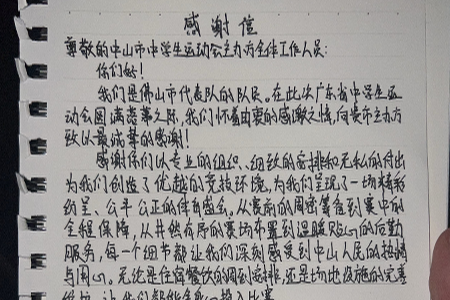 感谢信
尊敬的中山市中学生运动会主办方全体工作人员:
你们好!
我们是佛山市代表队的队员。在此次广东省中学生运
动会圆满落幕之际,我们怀着由衷的感激之情,向贵市主办方
致以最诚挚的感谢!
感谢你们以专业的组织、细致的安排和无私的付出
为我们创造了优越的竞技环境,为我们呈现了一场精彩
纷呈、公平公正的体育盛会。从赛前的周密筹备到赛中的
全程保障,从井然有序的赛场布置到温暖贴心的后勤
服务,每一个细节都让我们深刻感受到中山人民的热情
与用心。无论是住宿餐饮的周到安排,还是场地设施的完善
让我们都能全身心投入比赛